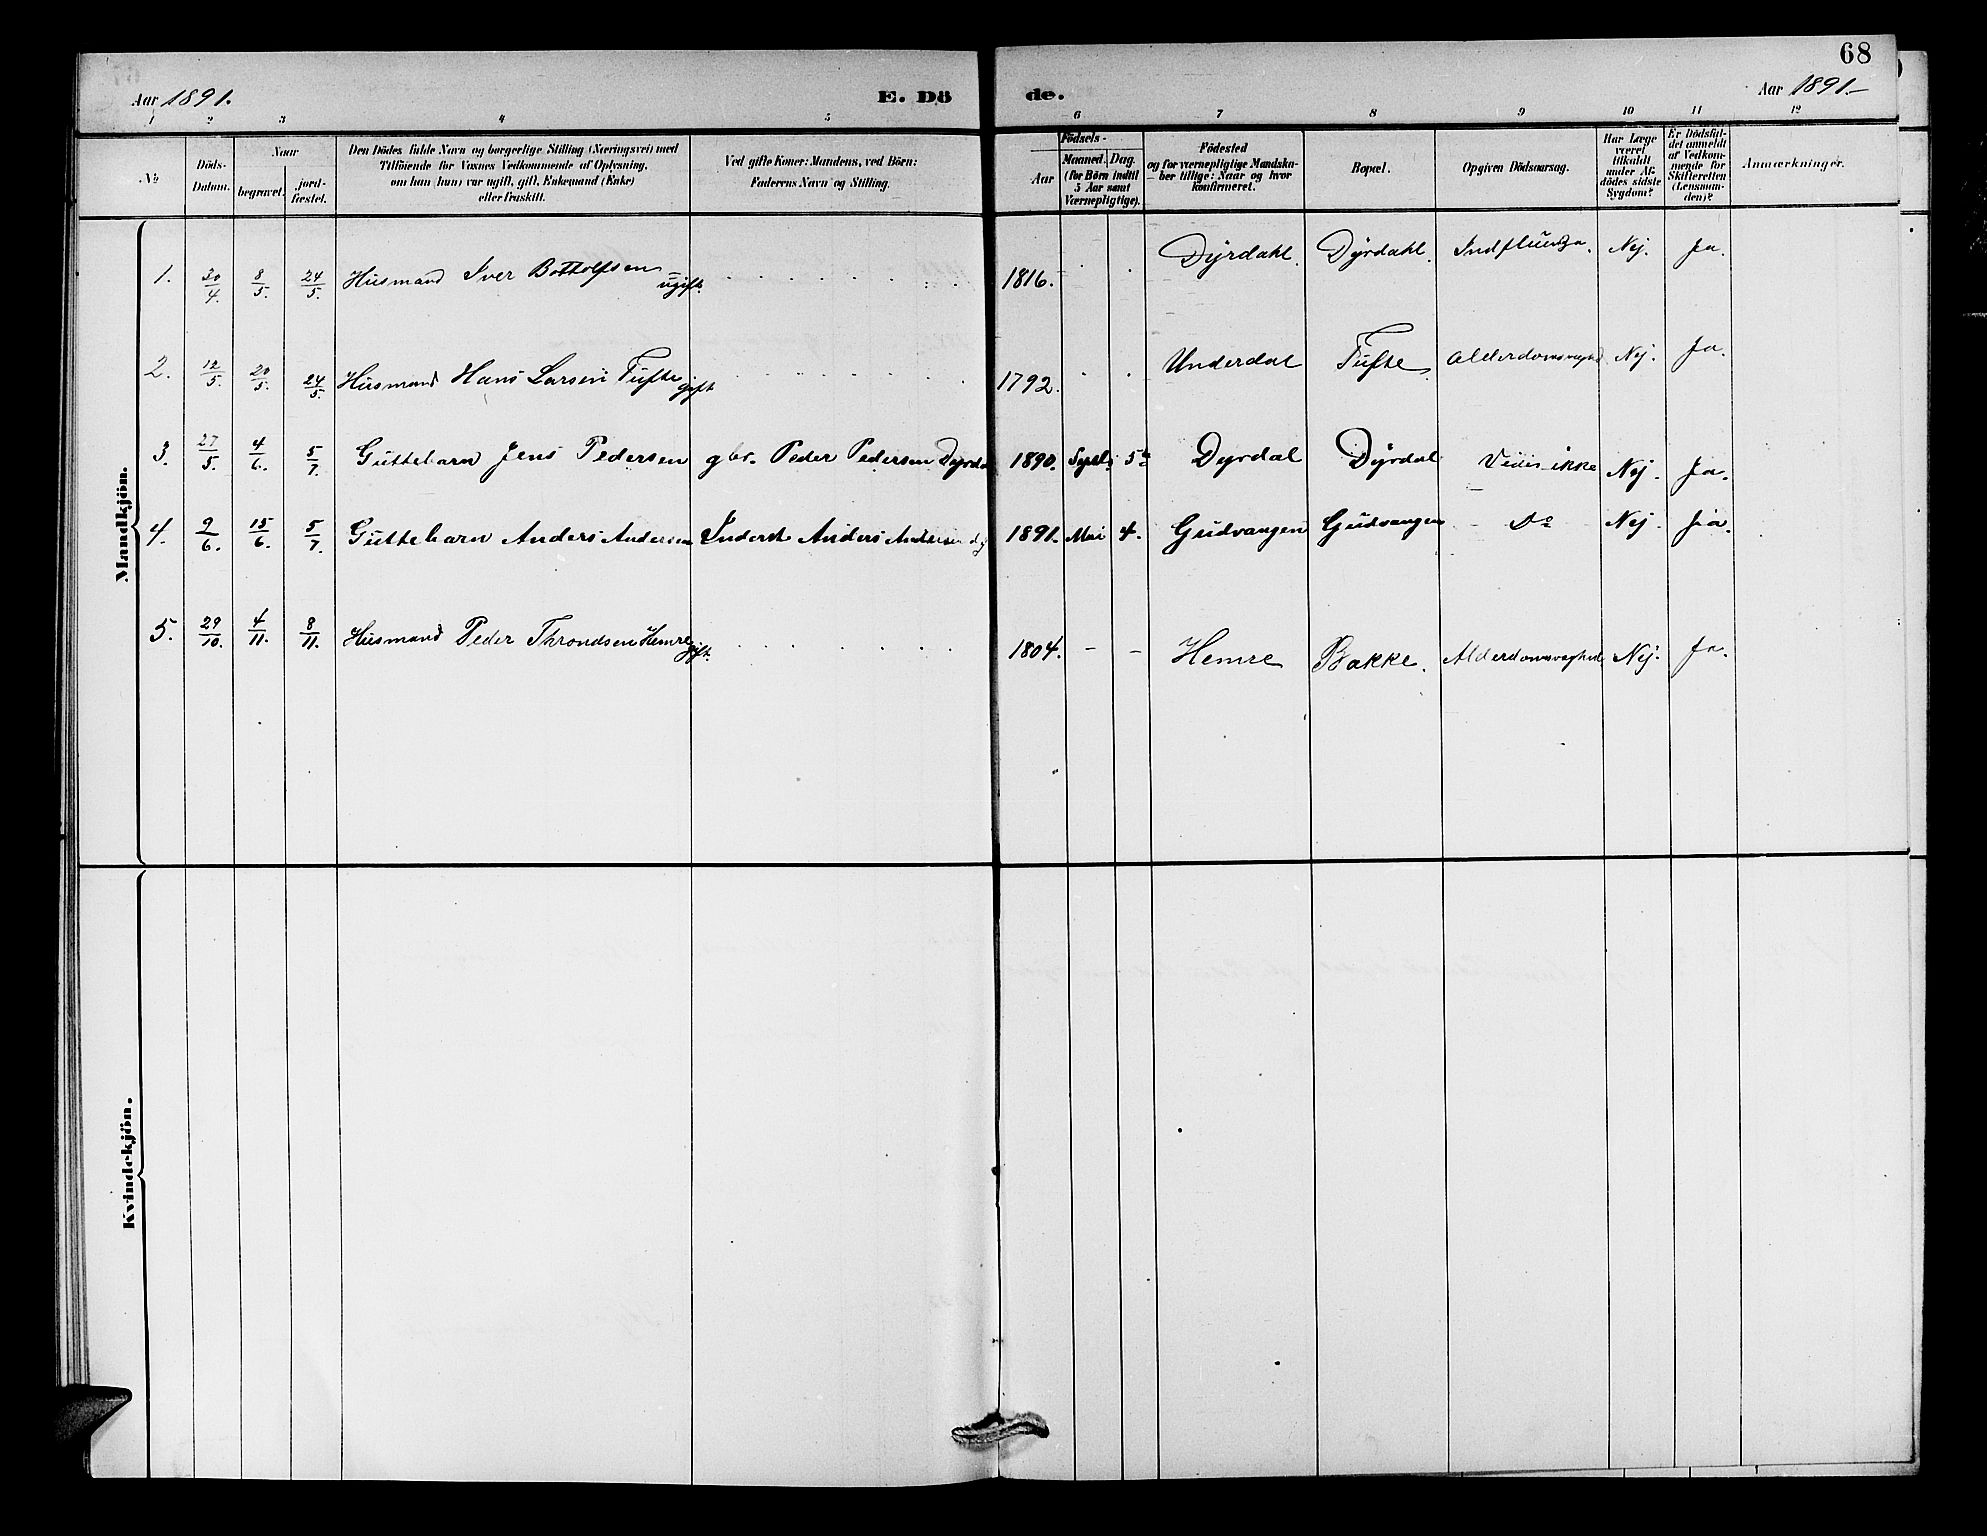 68
Aar 1891.
E. Dö
de.
Aar 1891.
1 2 3 4 5 6 7 8 9 10 11 12
No
Döds-
Datum.
Naar
begravet.
jord-
fæstet.
Den Dödes fulde Navn og borgerlige Stilling (Næringsvei) med
Tilföiende for Voxnes Vedkommende af Oplysning,
om han (hun) var ugift, gift, Enkemand (Enke)
eller fraskilt.
Ved gifte Koner: Mandens, ved Börn:
Faderens Navn og Stilling.
Födsels-
Aar
Maaned. Dag.
(for Börn indtil
5 Aar samt
Værnepligtige).
Födested
og for værnepligtige Mandska-
ber tillige: Naar og hvor
konfirmeret.
Bopæl.
Opgiven Dödsaarsag.
Har Læge
været
tilkaldt
under Af-
dödes sidste
Sygdom?
Er Dödsfal-
det anmeldt
af Vedkom-
mende for
Skifteretten
(Lensman-
den)?
Anmærkninger.
Mandkjön.
1. 30/4. 8/5. 24/5. Husmand Iver Botholfsen ugift. 1816. Dyrdahl. Dyrdahl. Indfluenza. Nej. Ja.
2. 12/5. 20/5. 24/5. Husmand Hans Larsen Tufte gift 1792. Underdal Tufte. Alderdomssvaghed Nej. Ja.
3. 27/5. 4/6. 5/7. Guttebarn Jens Pedersen gbr. Peder Pedersen Dyrdal 1890. Septb 5te Dyrdal Dyrdal Vides ikke Nej. Ja.
4. 9/6. 15/6. 5/7. Guttebarn Anders Andersen Inderst Anders Andersen 1891. Mai 4. Gudvangen Gudvangen Do Nej. Ja.
5. 29/10. 4/11. 8/11. Husmand Peder Throndsen Hemre gift. 1804. - - Hemre Bakke. Alderdomssvaghed Nej. Ja.
Kvindekjön.